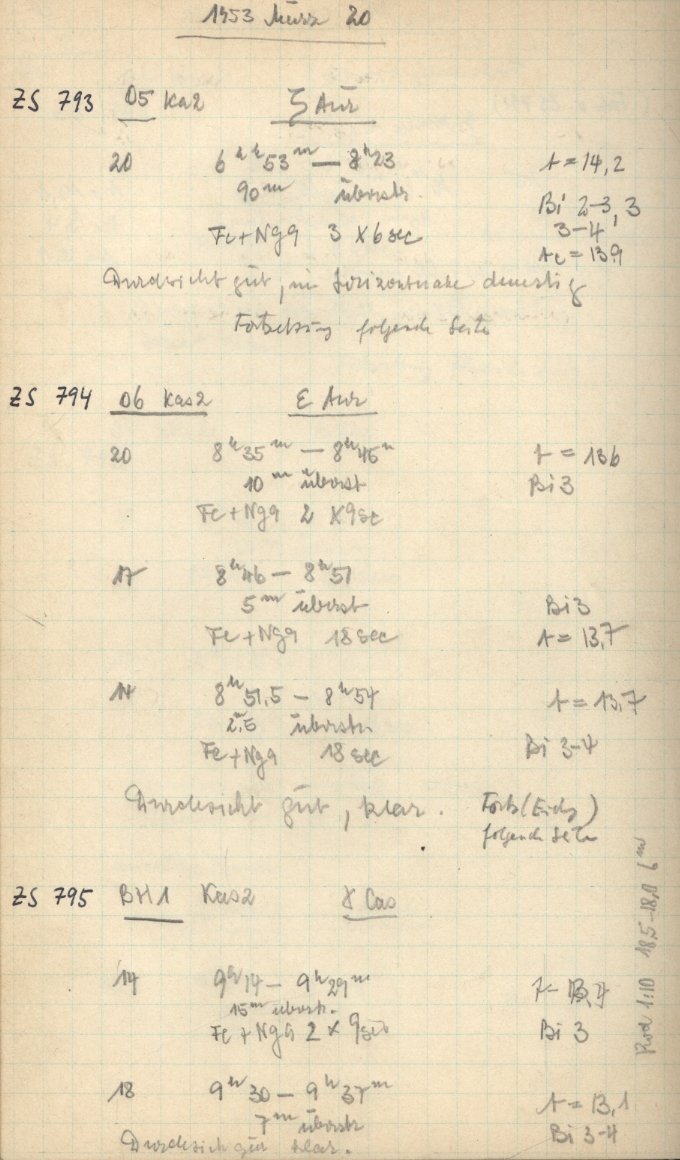 1953 März 20
ZS 793 O5 Ka2 ζ Aur
20 6h 53m — 8h 23 t = 14,2
90m überstr. Bi 2-3, 3
3-4
Fe+Ng9 3 x 6 sec te = 13,9
Durchsicht gut, in Horizontnähe dunstig
Fortsetzung folgende Seite
ZS 794 O6 Kas2 ε Aur
20 8h 35m — 8h 45m t = 13,6
10m überst Bi 3
Fe+Ng9 2 x 9 sec
17 8h 46 — 8h 51
5m überst Bi 3
Fe+Ng9 18 sec t = 13,7
14 8h 51,5 — 8h 54 t = 13,7
2,5 überstr.
Fe+Ng9 18 sec Bi 3-4
Durchsicht gut, klar. Forts.
folgende Seite
ZS 795 BH1 Kas2 γ Cas
14 9h 14 — 9h 29m
15m überstr. Bi 3
Fe+Ng9 2 x 9 sec
18 9h 30 — 9h 37m t = 13,1
7m überstr Bi 3-4
Durchsicht gut klar.
1:10 18,5-18,11 6m